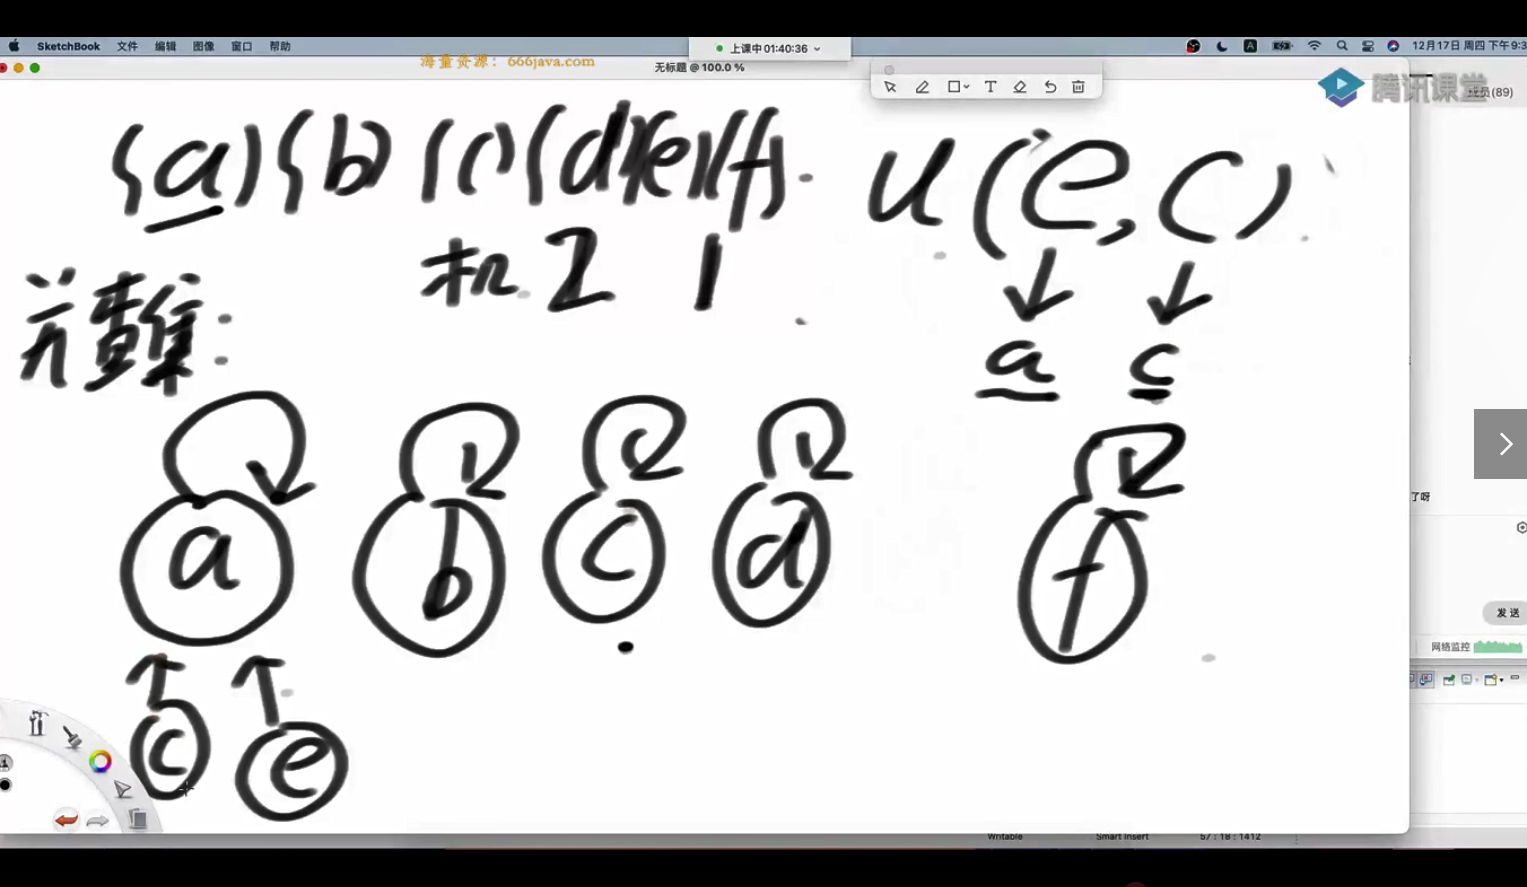 SketchBook 文件 编辑 图像 窗口 帮助
上课中 01:40:36
12月17日 周四 下午9:3
海量资源：666java.com
无标题 @ 100.0 %
腾讯课堂
成员(89)
{a} {b} {c} {d} {e} {f}
U(e,c)
2 1
并查集：
a c
a b c d f
c e
了呀
发送
网络监控
Writable Smart Insert 57 : 18 : 1412